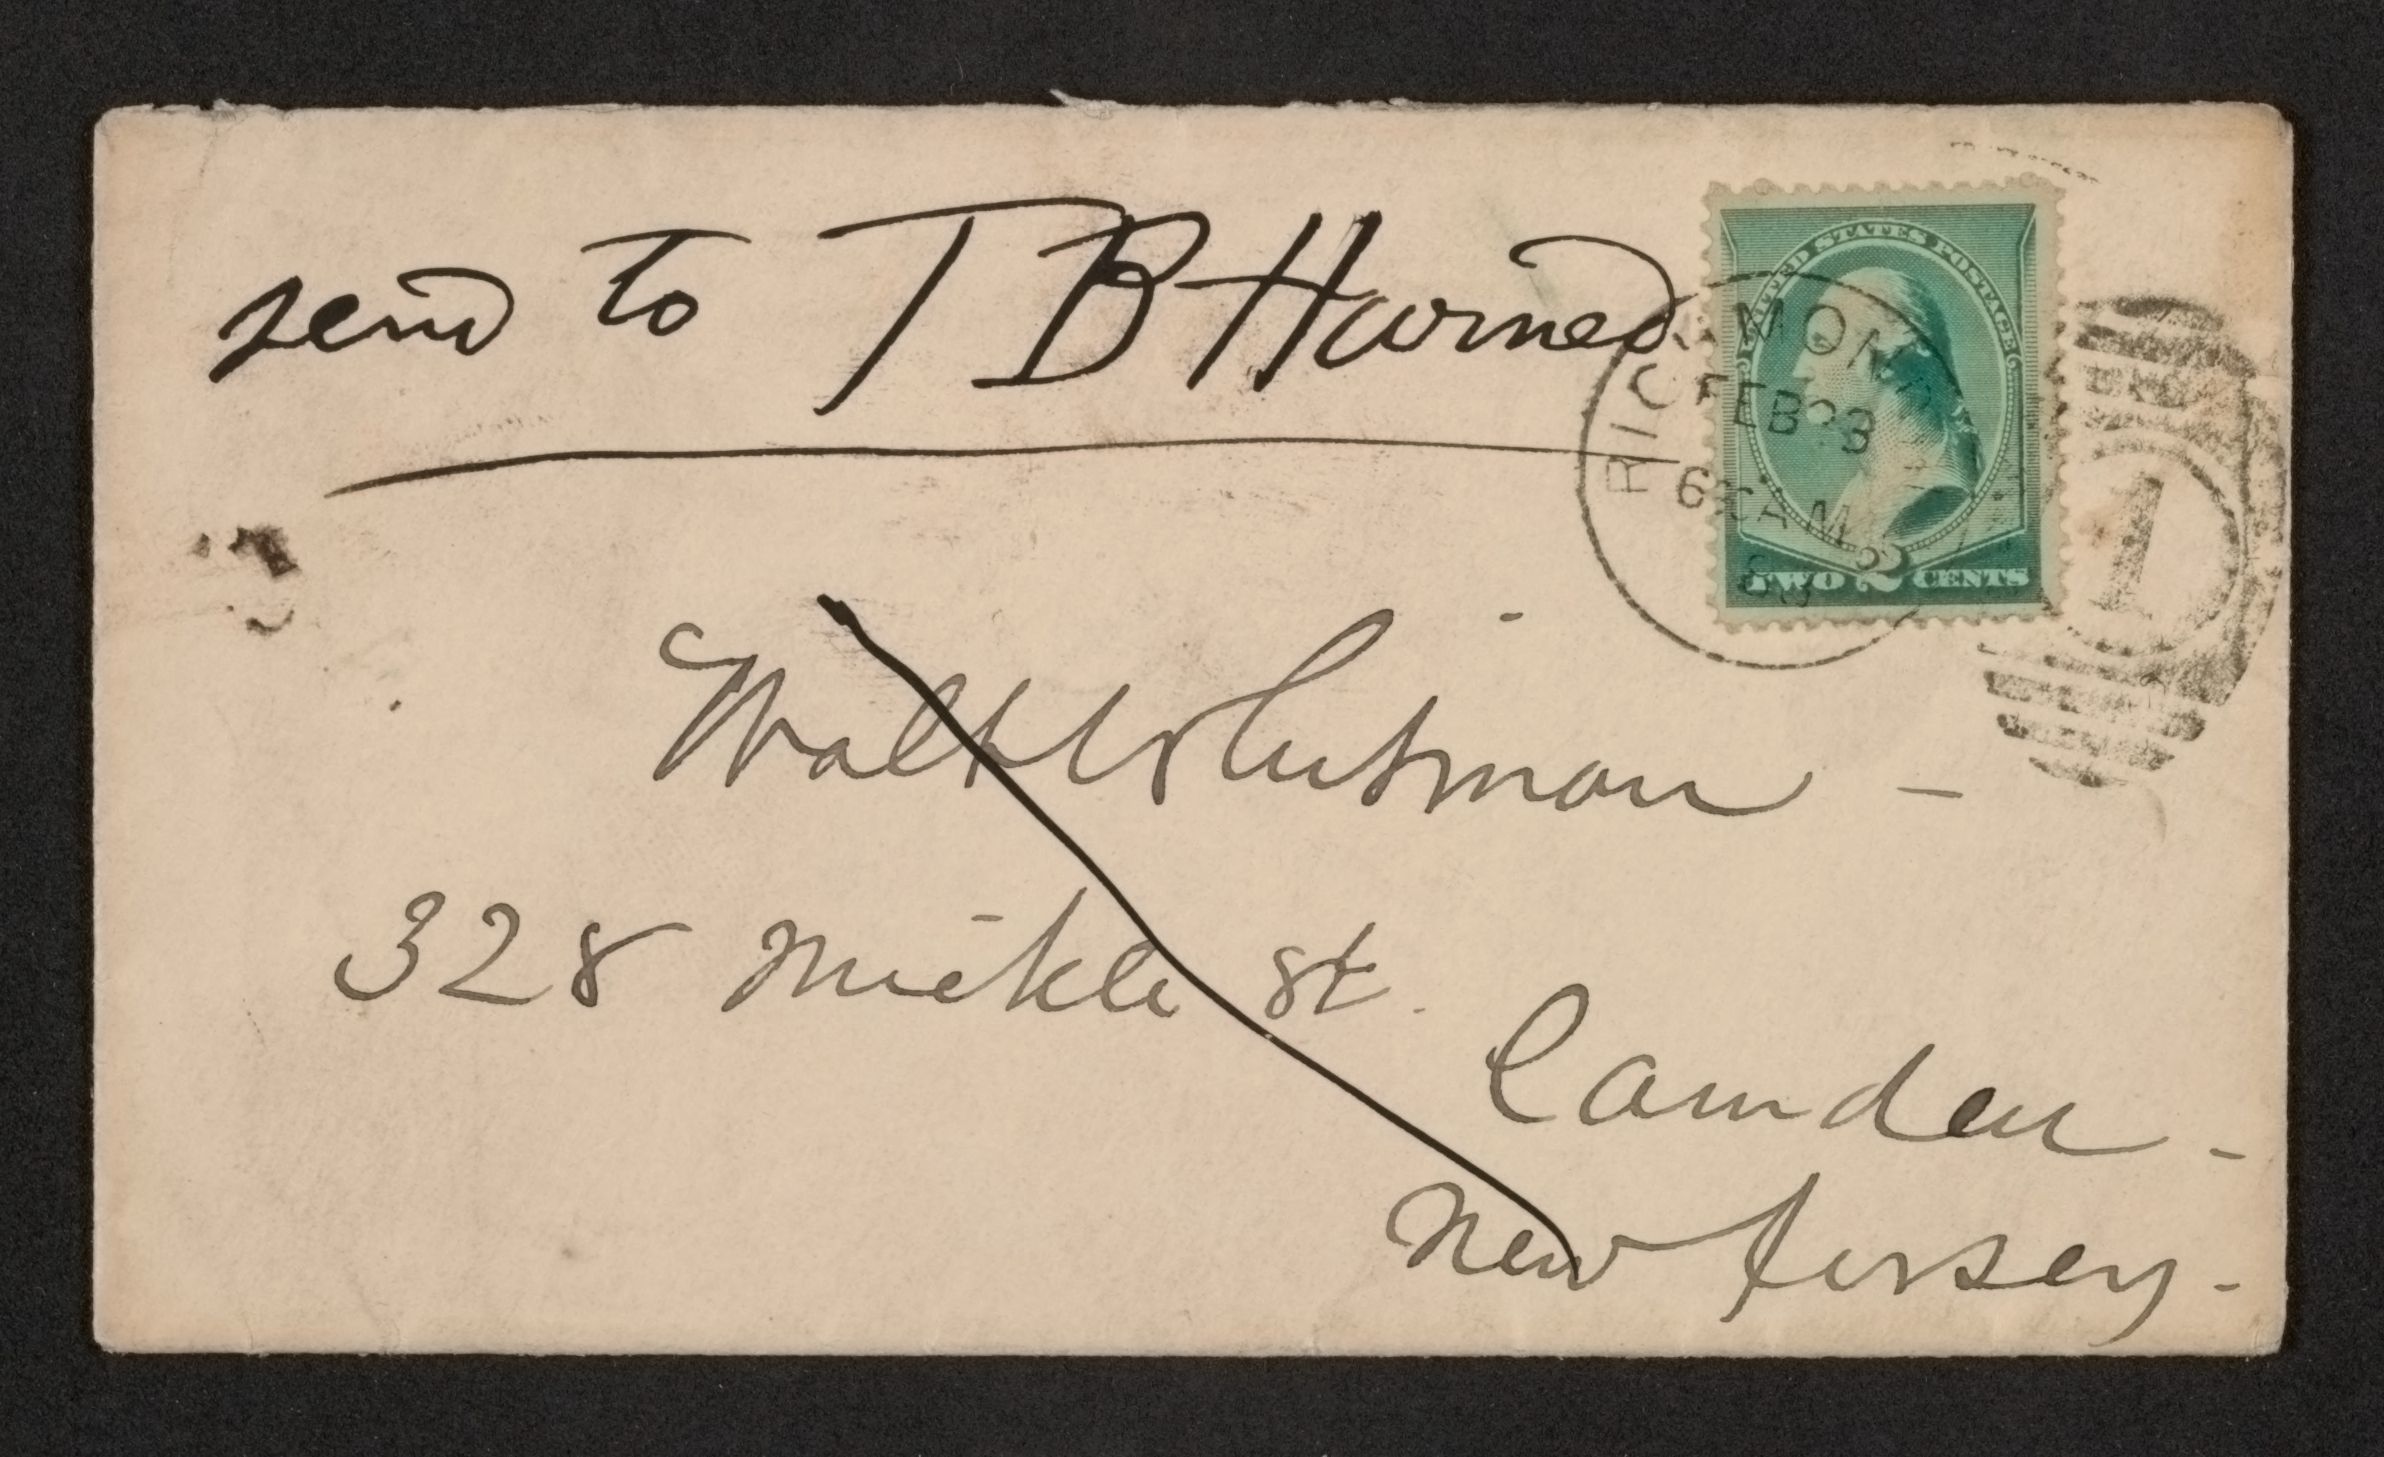 send to T B Harned
UNITED STATES POSTAGE
RICHMOND
FEB 23
6 AM
88
TWO 2 CENTS
1
Walt Whitman -
328 Mickle st.
Camden -
New Jersey -